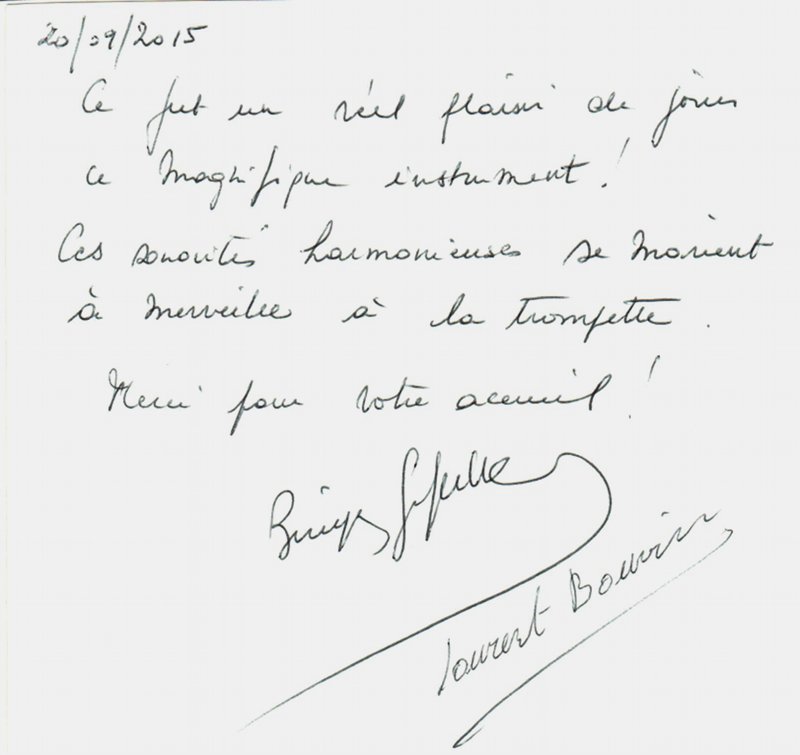 20/09/2015
Ce fut un réel plaisir de jouer
ce magnifique instrument !
Ces sonorités harmonieuses se marient
à merveille à la trompette.
Merci pour votre accueil !
Laurent Bouvier